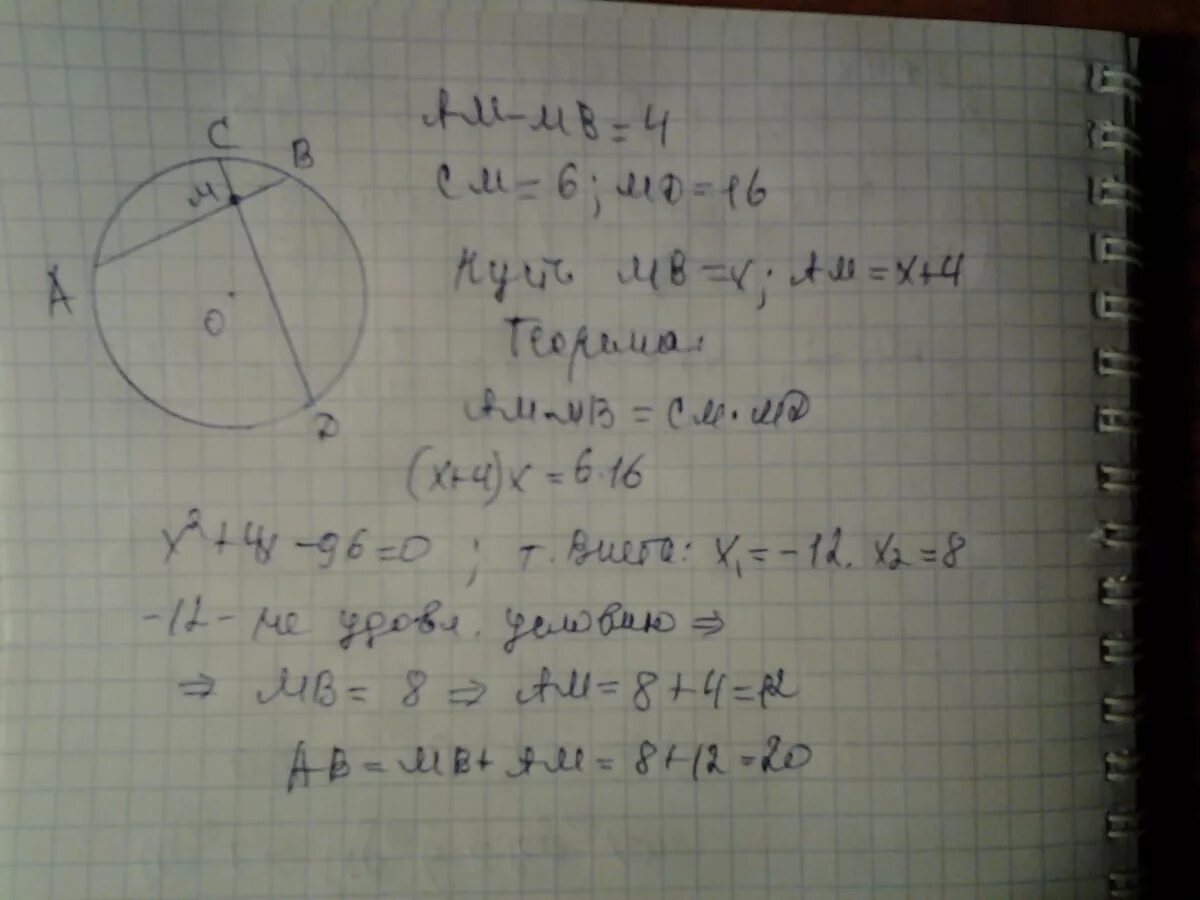 C
B
M
A
O
D
AM-MB=4
CM=6; MD=16
Пусть MB=x; AM=x+4
Теорема:
AM·MB=CM·MD
(x+4)x=6·16
x²+4x-96=0; т. Виета: x₁=-12. x₂=8
-12- не удовл. условию ⇒
⇒ MB=8 ⇒ AM=8+4=12
AB=MB+AM=8+12=20